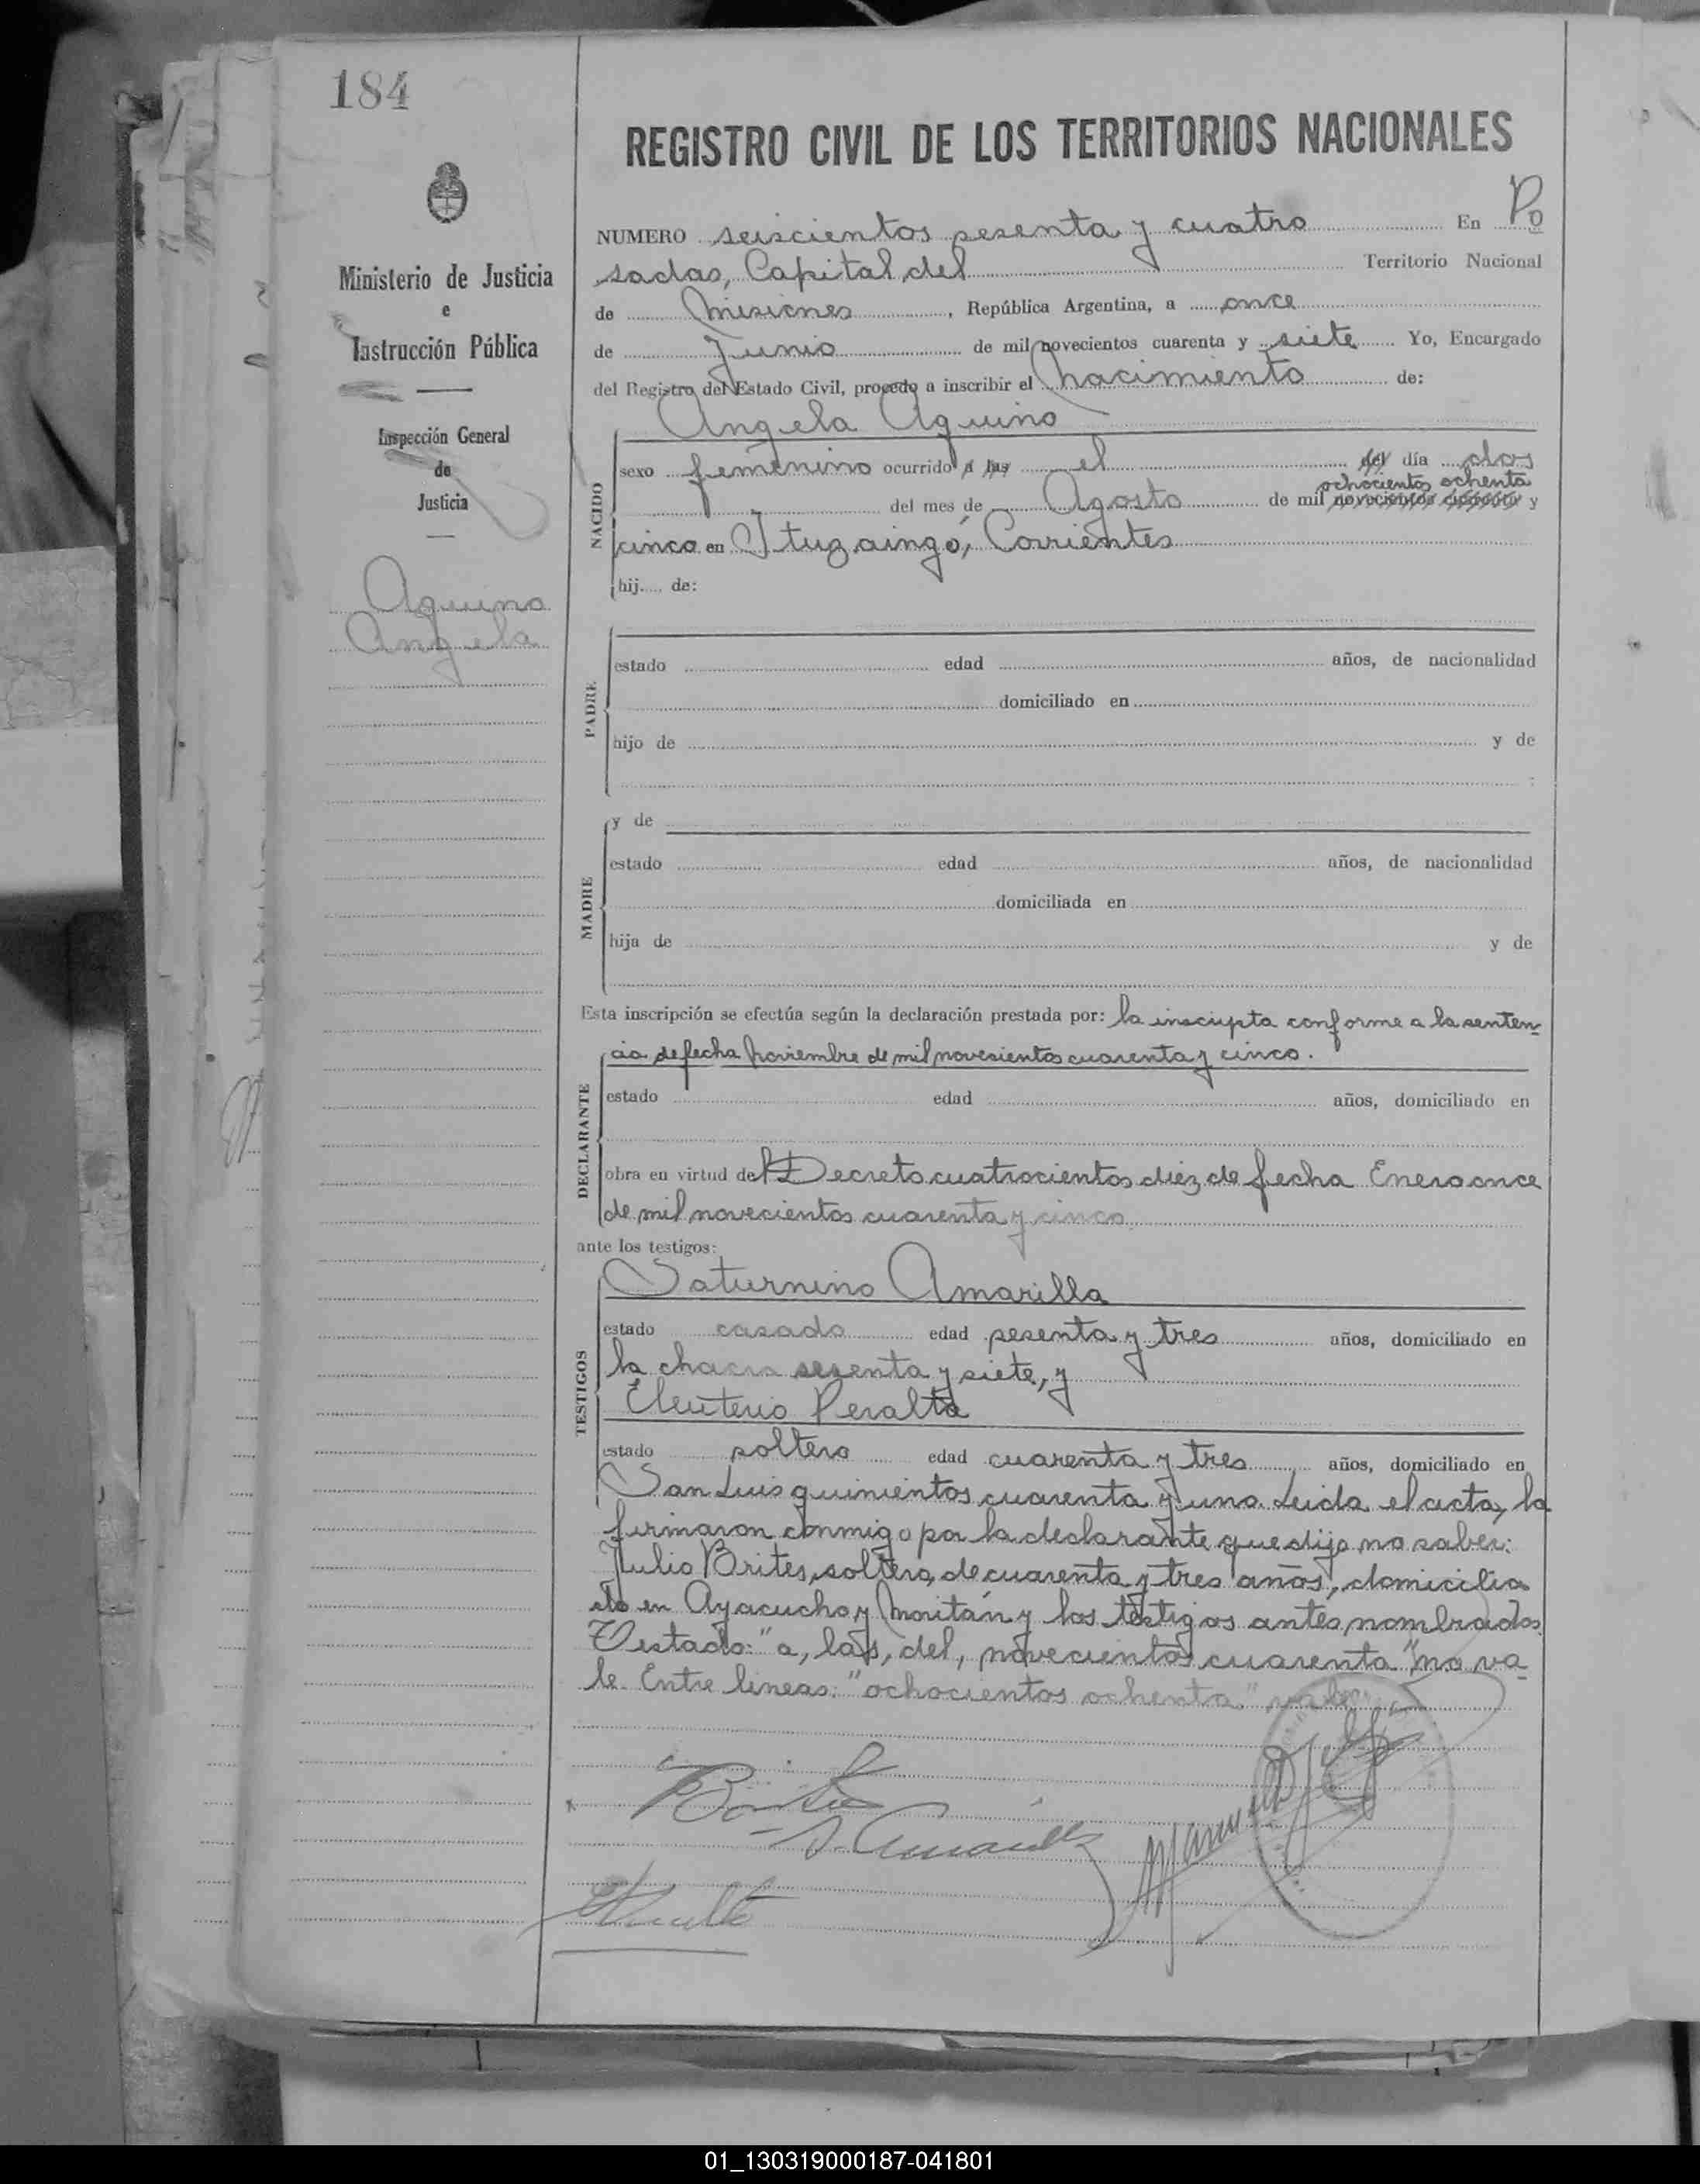 184
REGISTRO CIVIL DE LOS TERRITORIOS NACIONALES
Ministerio de Justicia
e
Instrucción Pública
Inspección General
de
Justicia
Aquino
Angela
NUMERO seiscientos sesenta y cuatro En Po
sadas, Capital del Territorio Nacional
de Misiones, República Argentina, a once
de Junio de mil novecientos cuarenta y siete Yo, Encargado
del Registro del Estado Civil, procedo a inscribir el Nacimiento de:
Angela Aquino
NACIDO
sexo femenino ocurrido a las el del día dos
ochocientos ochenta
del mes de Agosto de mil novecientos cuarenta y
cinco en Ituzaingó, Corrientes
hij.... de:
PADRE
estado edad años, de nacionalidad
domiciliado en
hijo de y de
MADRE
y de
estado edad años, de nacionalidad
domiciliada en
hija de y de
Esta inscripción se efectúa según la declaración prestada por: la inscripta conforme a la senten-
cia de fecha Noviembre de mil novecientos cuarenta y cinco.
DECLARANTE
estado edad años, domiciliado en
obra en virtud del Decreto cuatrocientos diez de fecha Enero once
de mil novecientos cuarenta y cinco
ante los testigos:
Saturnino Amarilla
TESTIGOS
estado casado edad sesenta y tres años, domiciliado en
la chacra sesenta y siete, y
Eleuterio Peralta
estado soltero edad cuarenta y tres años, domiciliado en
San Luis quinientos cuarenta y uno. Leida el acta, la
firmaron conmigo por la declarante que dijo no saber:
Julio Brites, soltero, de cuarenta y tres años, domicilia
do en Ayacucho y Moritán y los testigos antes nombrados
Testado: "a, las, del, novecientos cuarenta" no va-
le. Entre lineas: "ochocientos ochenta" vale.
S. Amarilla
01_130319000187-041801